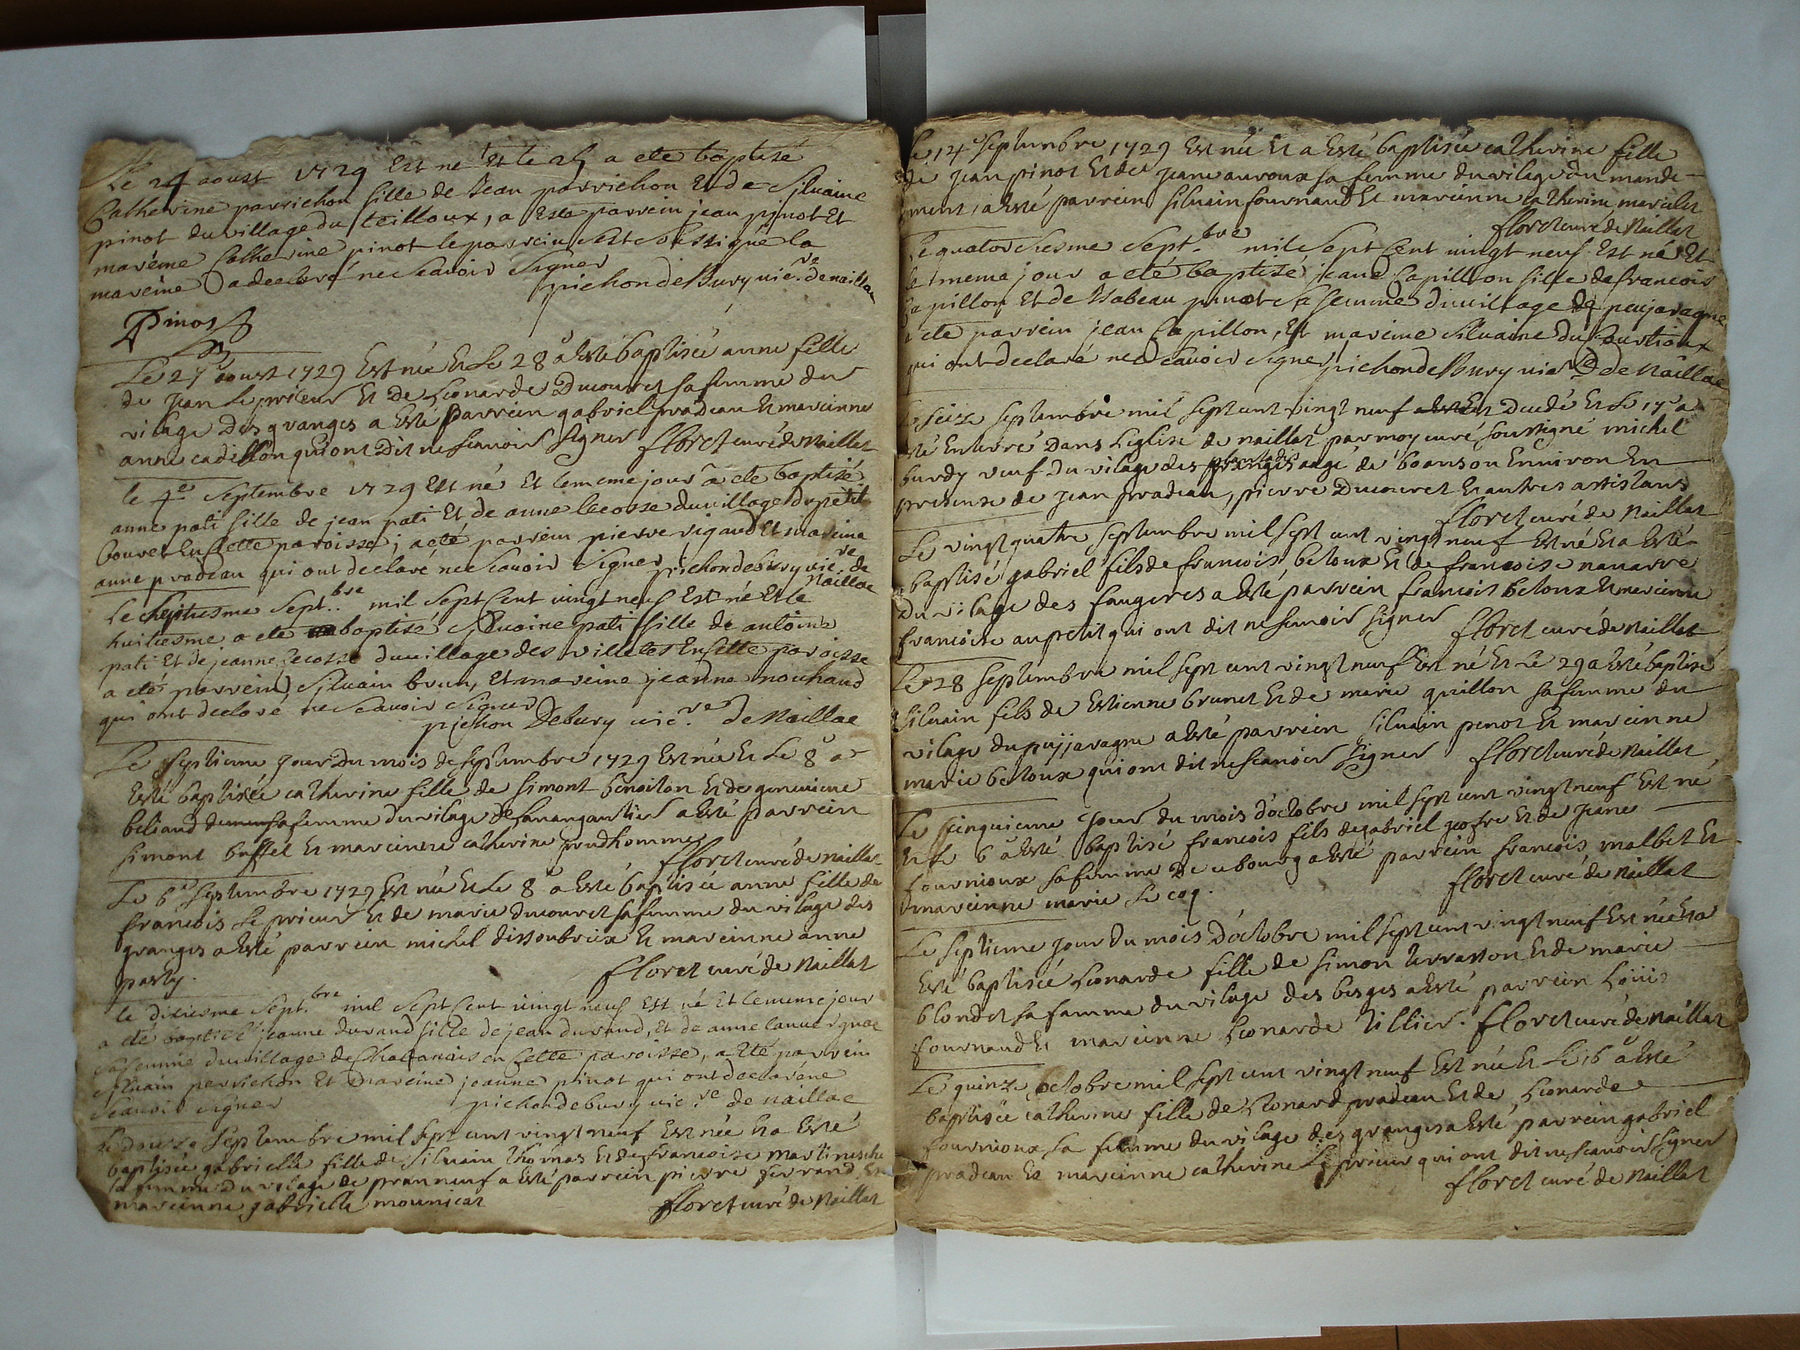 Le 24 aoust 1729 Est né Et le 25 a ete baptisé
Catherine parrichon fille de Jean parrichon Et de Silvaine
pinot du village du teilloux, a este parrein jean pinot Et
mareine Catherine pinot le parrein s'est soussigné la
mareine a declaré ne scavoir signer
pichon de Bury vic.re de naillac
Pinot
Le 27 aoust 1729 Est née Et Le 28 a Esté baptisée anne fille
de Jean Le prieur Et de Leonarde Ducouret sa femme du
vilage des granges a Esté parrein gabriel pradeau Et mareinne
anne cadillon qui ont Dit ne scavoir signer floret curé de Naillat
le 4e Septembre 1729 Est né Et le meme jour a ete baptisé
anne pati fille de jean pati Et de anne lecosse du village du petit
bouvet En Cette paroisse; a eté parrein pierre rigaud Et mareine
anne pradeau qui ont declaré ne scavoir signer pichon de bury vic.re de
Naillac
Le septiesme Sept.bre mil Sept Cent vingt neuf Est né Et le
huitiesme a ete baptisé Silvaine pati fille de antoine
pati Et de jeanne Lecosse du village des villetes En Cette paroisse
a eté parrein Silvain brun, Et mareine jeanne nouhaud
qui ont declaré ne scavoir signer
pichon De bury vic.re de Naillac
Le septieme jour du mois de septembre 1729 Est née Et Le 8 a
Esté baptisée catherine fille de simont benoiton Et de genevieve
beliand sa femme du vilage de a Esté parrein
simont buffet Et mareinne catherine prudhomme
floret curé de Naillat
Le 6 septembre 1729 Est née Et Le 8 a Esté baptisée anne fille de
francois Le prieur Et de marie ducouret sa femme du vilage des
granges a Esté parrein michel dissoubrieux Et mareinne anne
pasty.
floret curé de Naillat
le dixiesme Sept.bre mil Sept Cent vingt neuf Est né Et le meme jour
a eté baptisé jeanne durand fille de jean durand, Et de anne
sa femme du village de En Cette paroisse, a Eté parrein
Silvain perrichon Et mareine jeanne pinot qui ont declaré ne
scavoir signer pichon de bury vic.re de naillac
Le douse septembre mil sept cent vingt neuf Est née Et a Esté
baptisée gabrielle fille de Silvain thomas Et de francoise martinesche
sa femme du vilage de pranneuf a Esté parrein pierre ferrand Et
mareinne gabrielle mounicat floret curé de Naillat
Le 14e septembre 1729 Est née Et a Esté baptisée catherine fille
de jean pinot Et de jeane auroux sa femme du vilage du mande-
ment, a Esté parrein silvain fournaud Et mareinne catherine marcelet
floret curé de Naillat
Le quatorsiesme Sept.bre mil Sept Cent vingt neuf Est né Et
le meme jour a eté baptisé jeane Capillon fille de francois
Capillon Et de Isabeau pinot sa femme du village de peujaragne
a ete parrein jean Capillon, Et mareine Silvaine du Courtioux
qui ont declaré ne scavoir signer pichon de Bury vic.re de Naillac
Le seize septembre mil sept cent vingt neuf Est Decedé Et Le 17 a
Esté Enterré Dans L'eglise de naillat par moy curé soussigné michel
burdy veuf du vilage des agé de soanson Environ En
presence de jean pradeau, pierre Ducouret Et autres assistans
floret curé de Naillat
Le vingt quatre septembre mil sept cent vingt neuf Est né Et a Esté
baptisé gabriel fils de francois betoux Et de francoise navarre
Du vilage des faugeres a Esté parrein francois betoux Et mareinne
francoise aupetit qui ont dit ne scavoir signer floret curé de Naillat
Le 28 septembre mil sept cent vingt neuf Est né Et Le 29 a Esté baptisé
silvain fils de Estienne brunet Et de marie guillon sa femme du
vilage du puijaragne a Esté parrein silvain penot Et mareinne
marie betoux qui ont dit ne scavoir signer floret curé de Naillat
Le cinquieme jour du mois d'octobre mil sept cent vingt neuf Est né
Et Le 6 a Esté baptisé francois fils de gabriel jeofre Et de jeane
fournioux sa femme De ce bourg a Esté parrein francois malbet Et
mareinne marie Le coq. floret curé de Naillat
Le septieme jour du mois d'octobre mil sept cent vingt neuf Est née Et a
Esté baptisée Leonarde fille de simon terrasson Et de marie
blondet sa femme du vilage des besges a Esté parrein Louis
fournaud Et mareinne Leonarde tillier. floret curé de Naillat
Le quinze octobre mil sept cent vingt neuf Est née Et Le 16 a Esté
baptisée catherine fille de Leonard pradeau Et de Leonarde
fournioux sa femme du vilage des granges a Esté parrein gabriel
pradeau Et mareinne catherine Le prieur qui ont dit ne scavoir signer
floret curé de Naillat